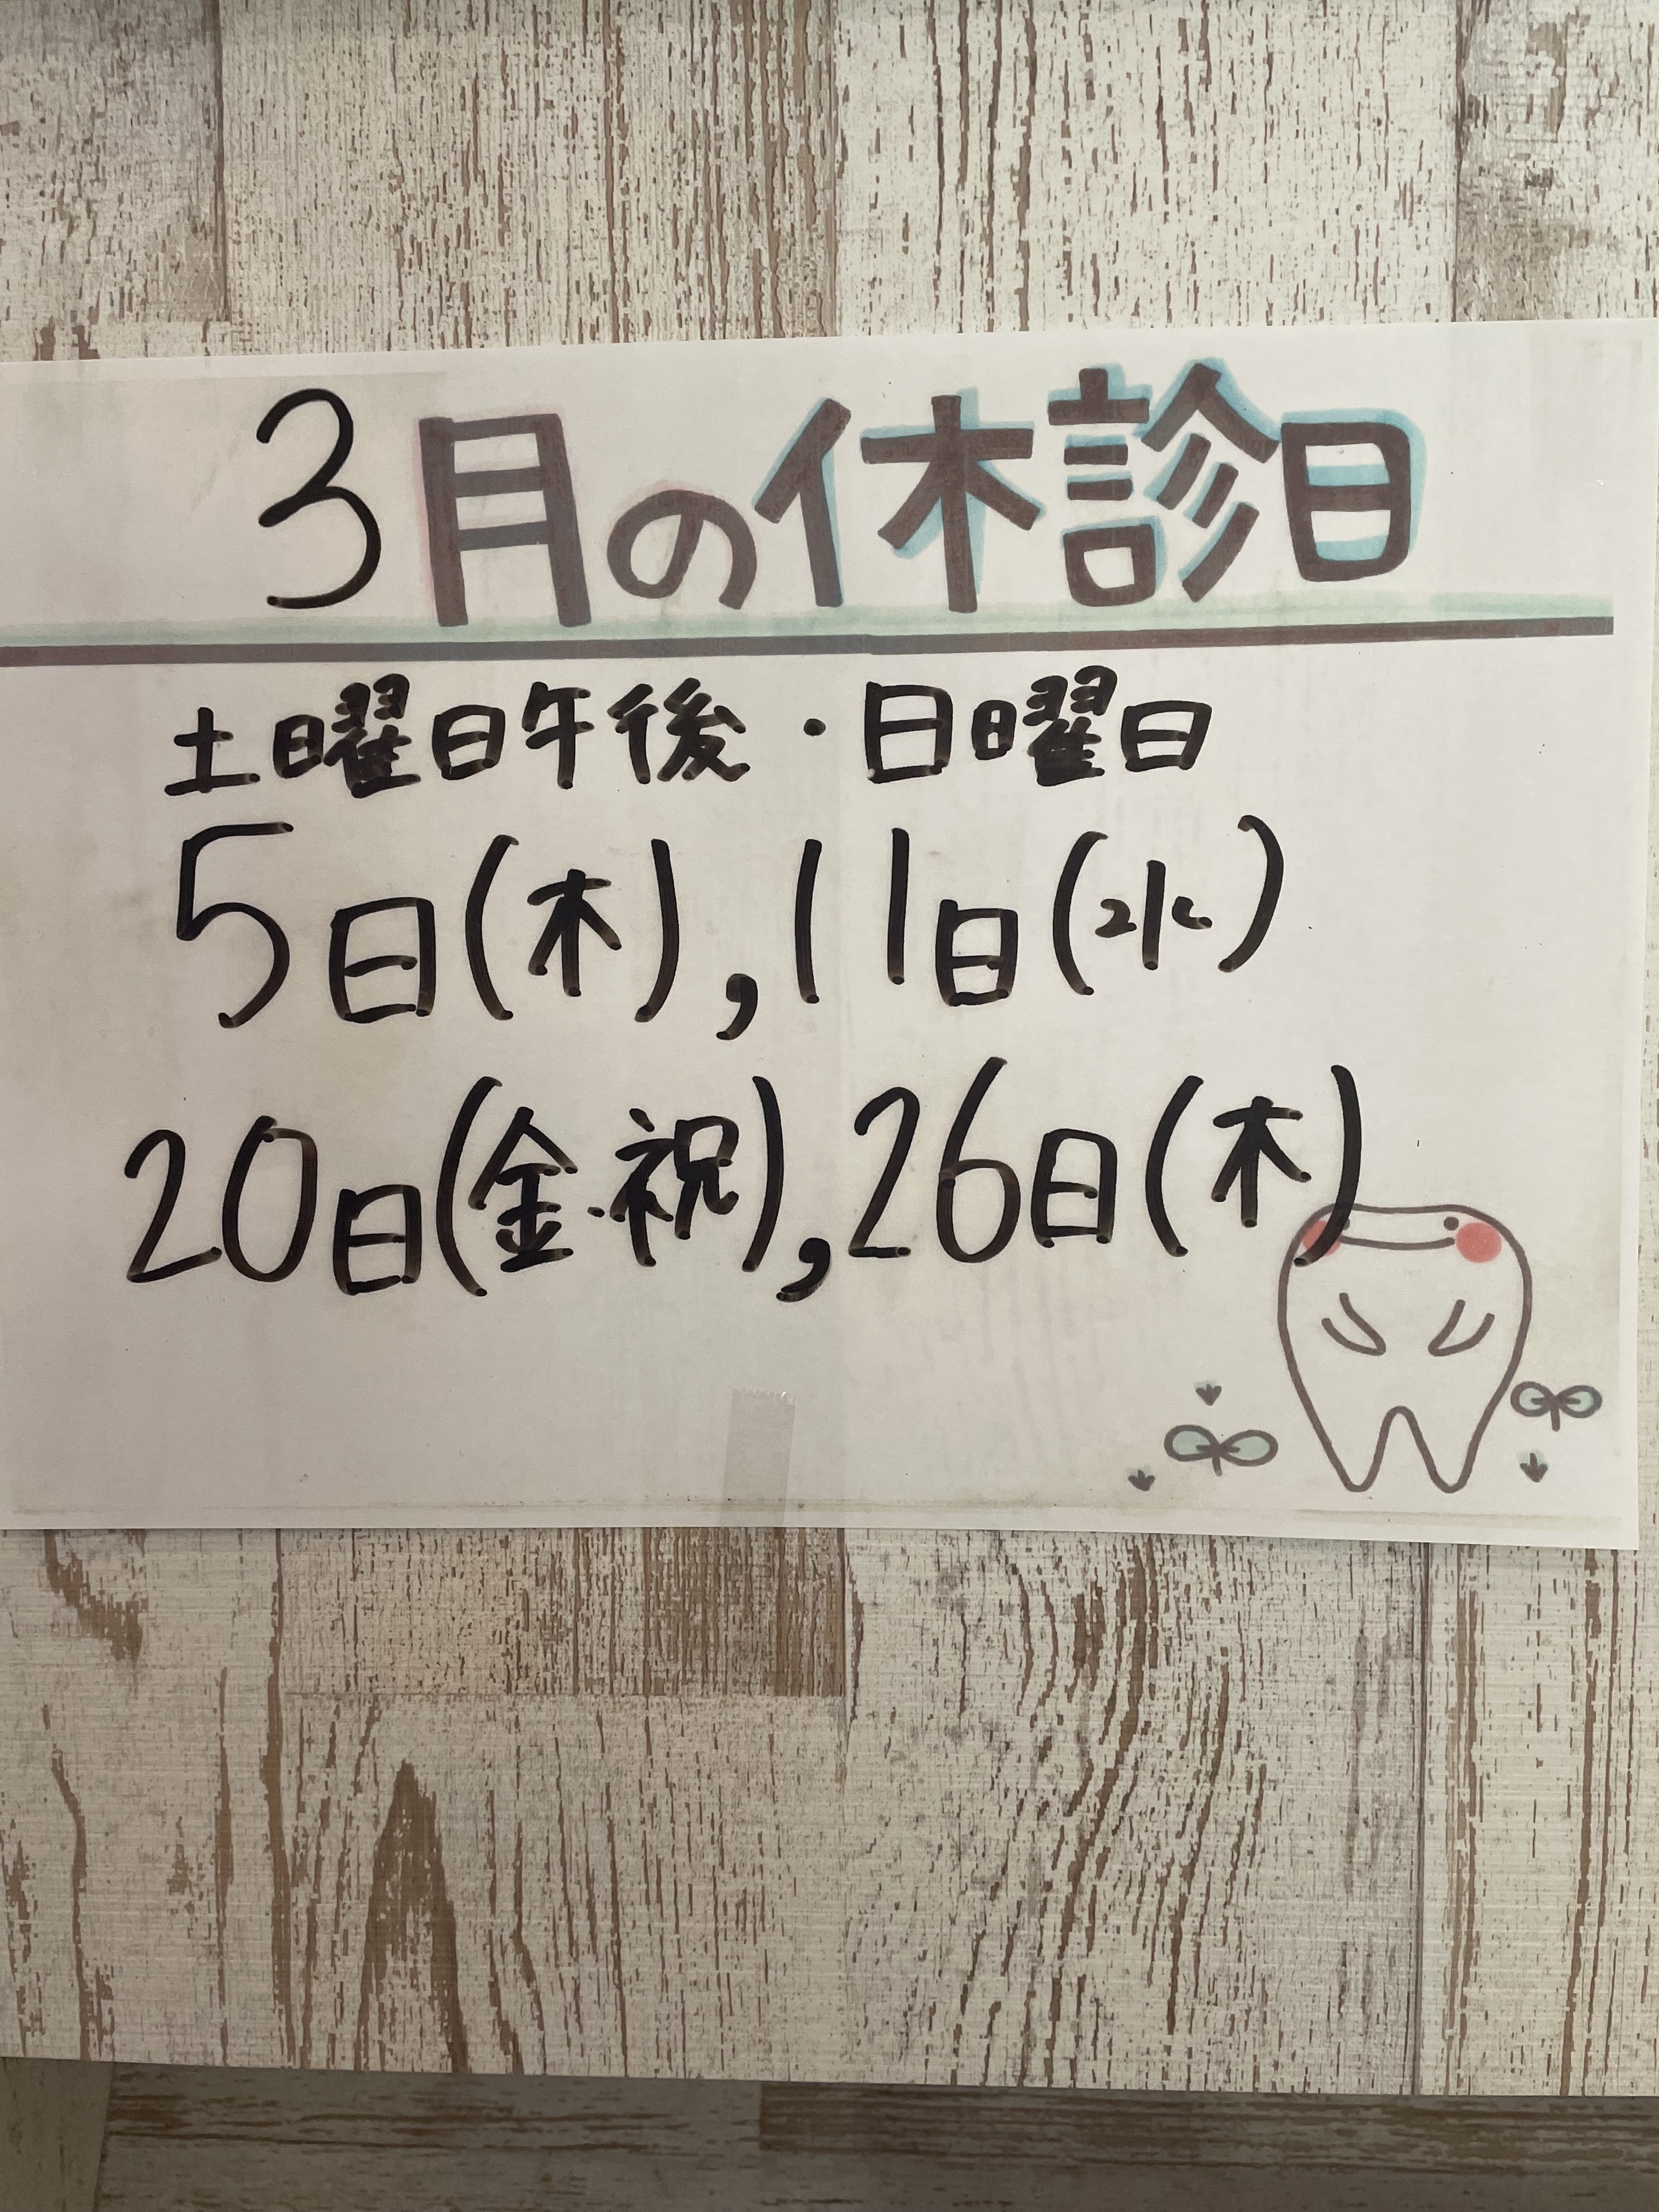 3月の休診日
土曜日午後・日曜日
5日(木),11日(水)
20日(金・祝),26日(木)